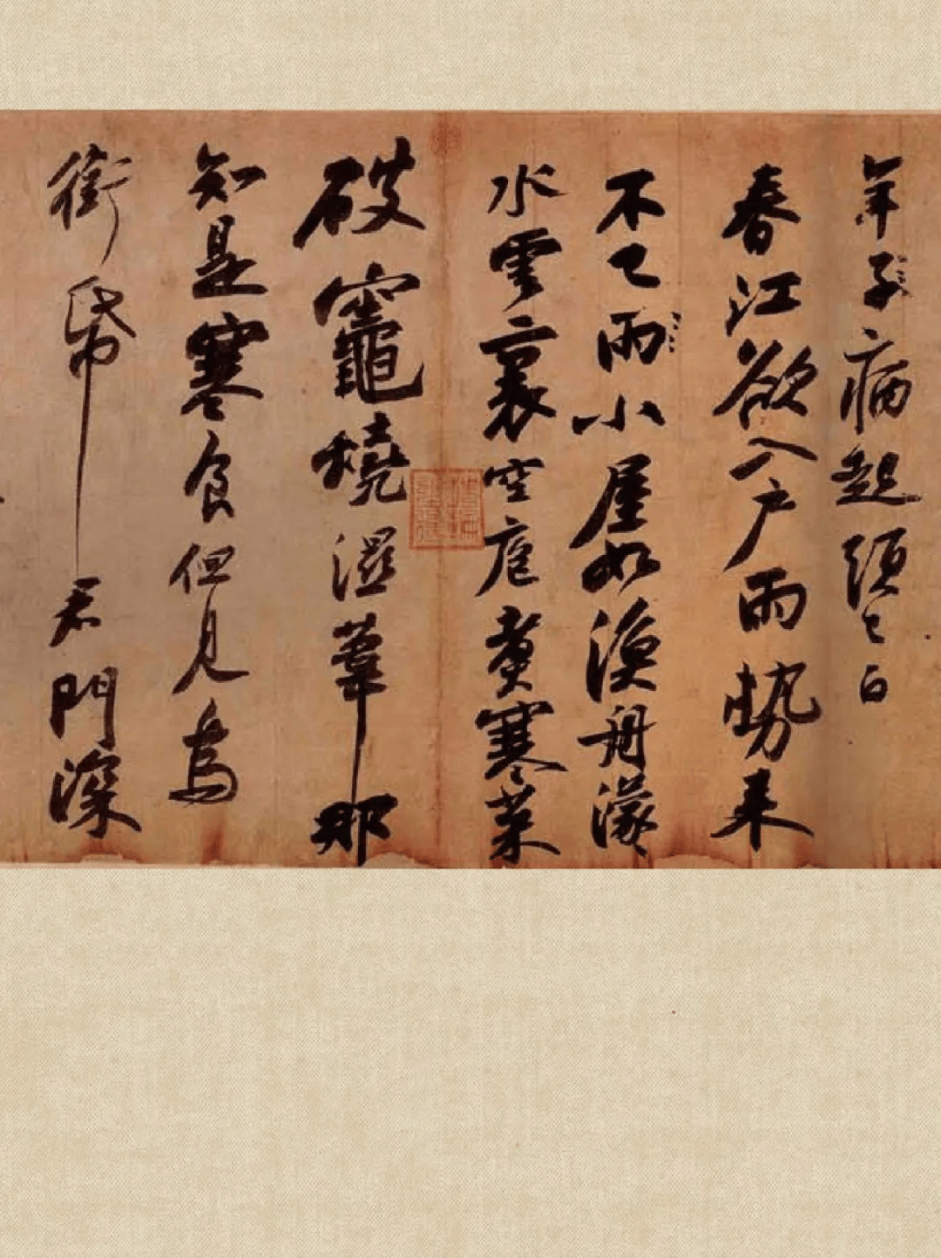 年子病起頭已白
春江欲入戶雨勢來
不已雨小屋如漁舟濛〻
水雲裏空庖煮寒菜
破竈燒濕葦那
知是寒食但見烏
銜帋君門深